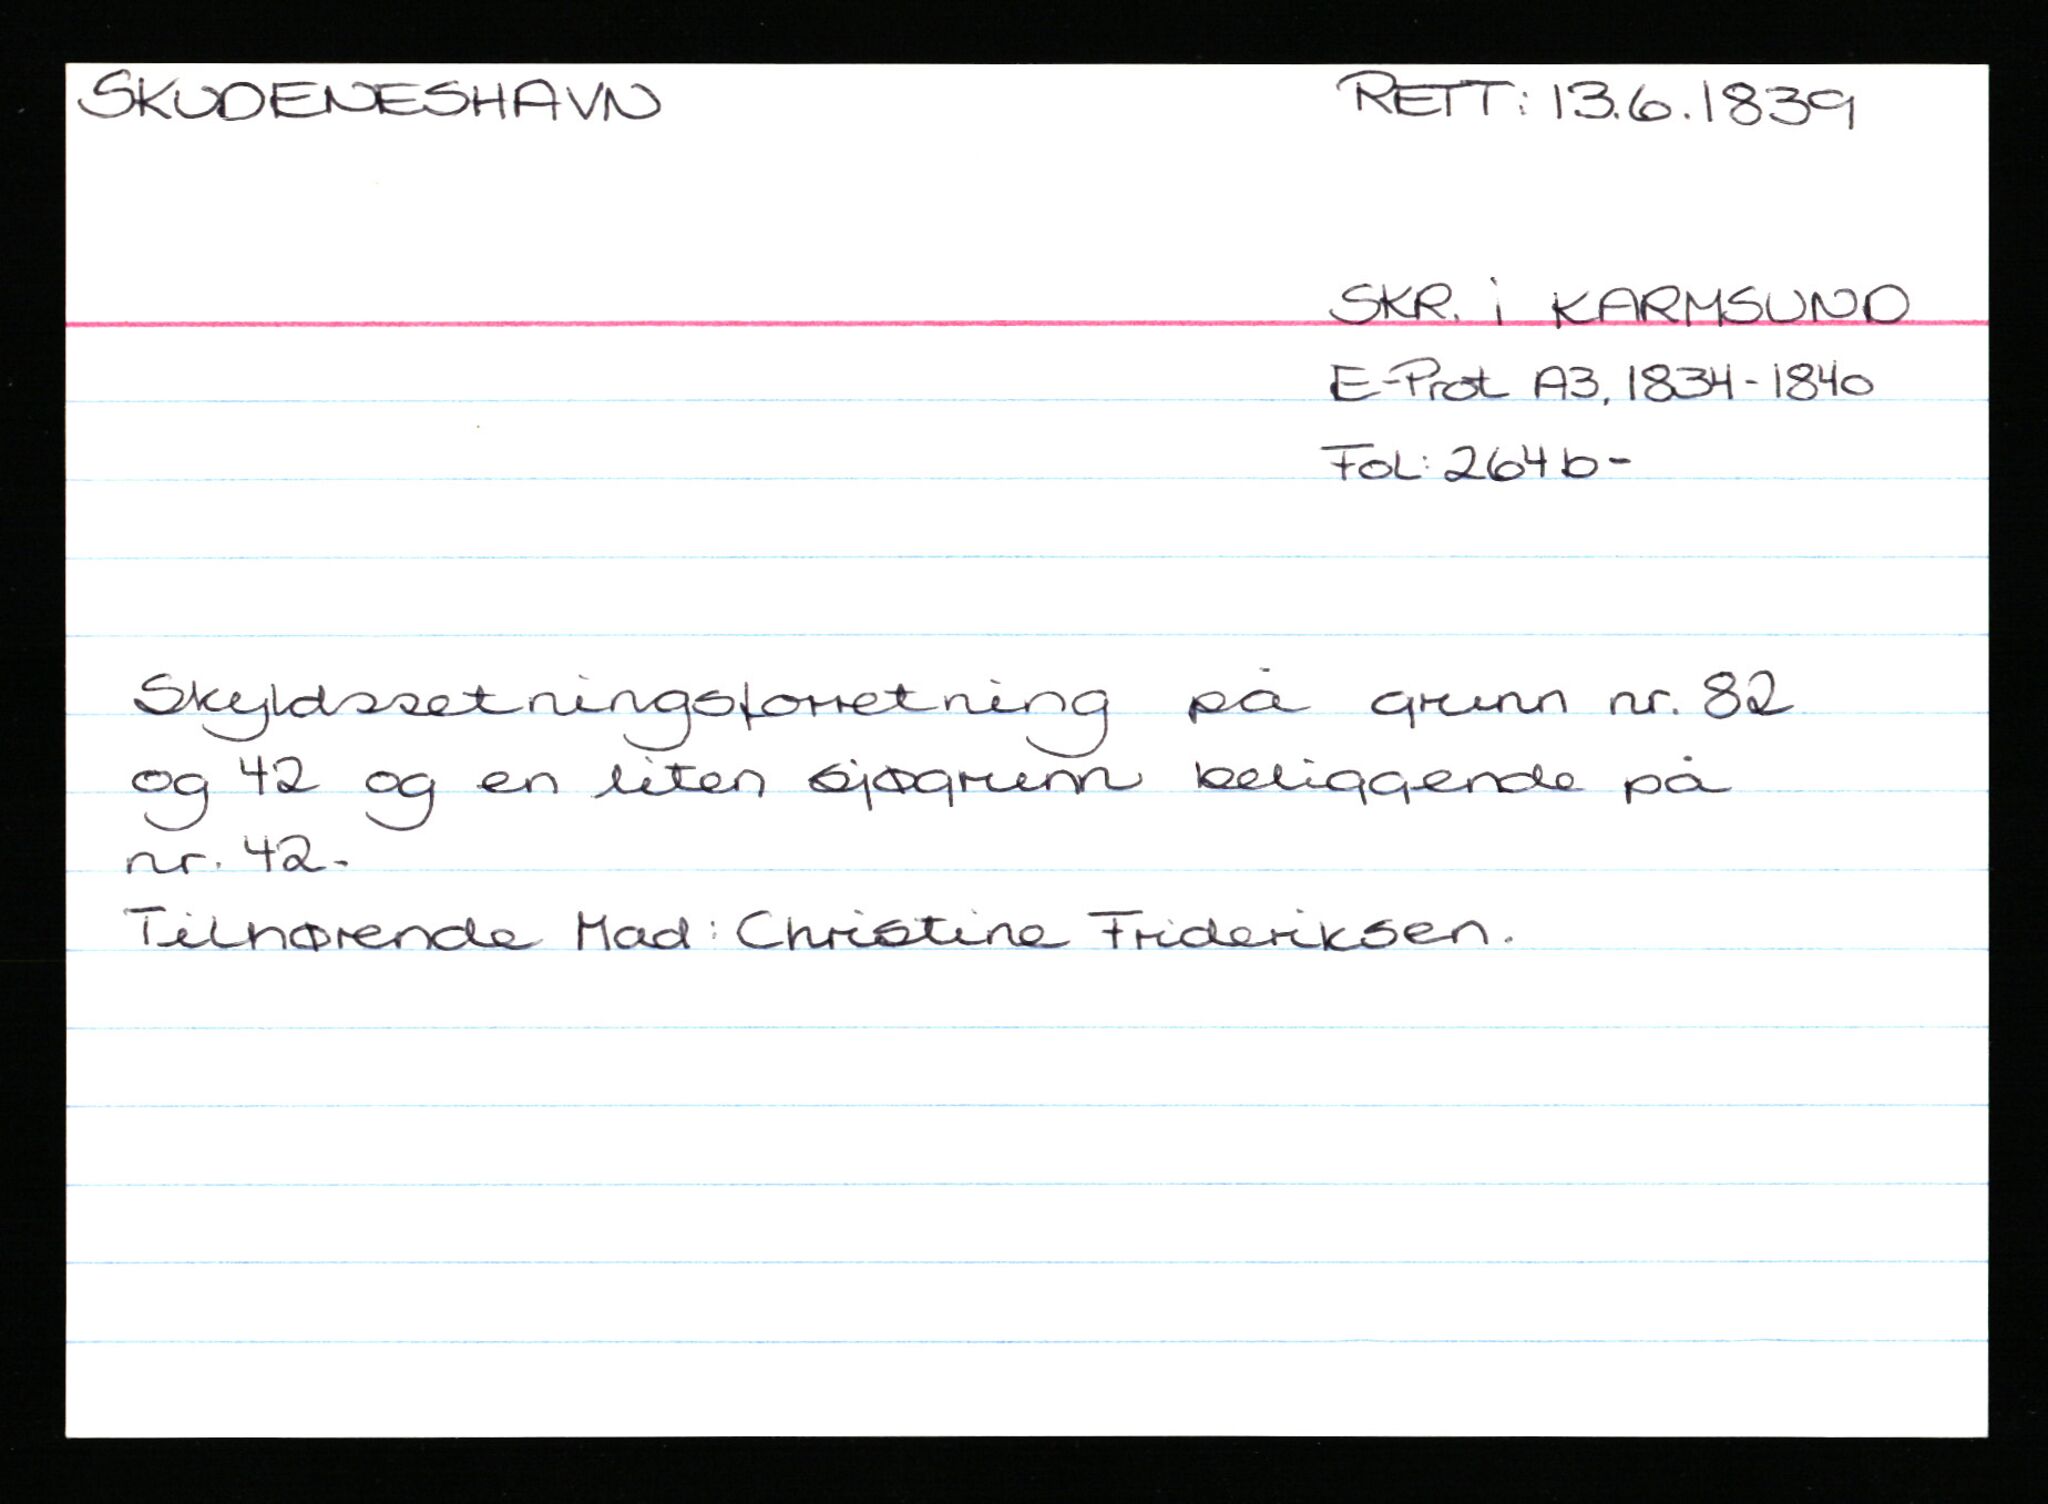 SKUDENESHAVN
RETT: 13.6.1839
SKR. i KARMSUND
E-Prot A3, 1834-1840
Fol: 264b-
Skyldssetningsforretning på grunn nr. 82
og 42 og en liten sjøgrunn beliggende på
nr. 42.
Tilhørende Mad: Christine Frideriksen.